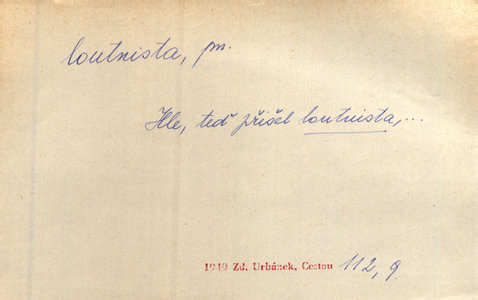 loutnista, pm.
Hle, teď přišel loutnista,...
1949 Zd. Urbánek, Cestou 112, 9